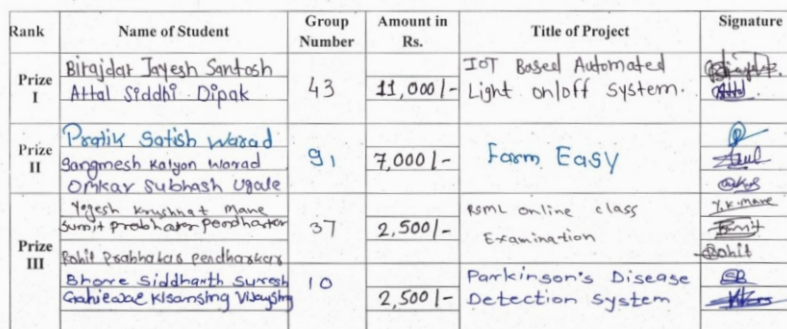 Rank Name of Student Group Number Amount in Rs. Title of Project Signature
Prize I
Birajdar Jayesh Santosh
Attal Siddhi Dipak
43
11,000/-
IoT Based Automated
Light on/off System.
Prize II
Pratik Satish Warad
Sangmesh Kalyan Warad
Omkar Subhash Ugale
91
7,000/-
Farm Easy
Prize III
Yogesh Krushnat Mane
Sumit Prabhakar Pendharkar
Rohit Prabhakar pendharkar
37
2,500/-
RSML online class
Examination
Y.K. Mane
Rohit
Bhore Siddharth Suresh
10
2,500/-
Parkinson's Disease
Detection System